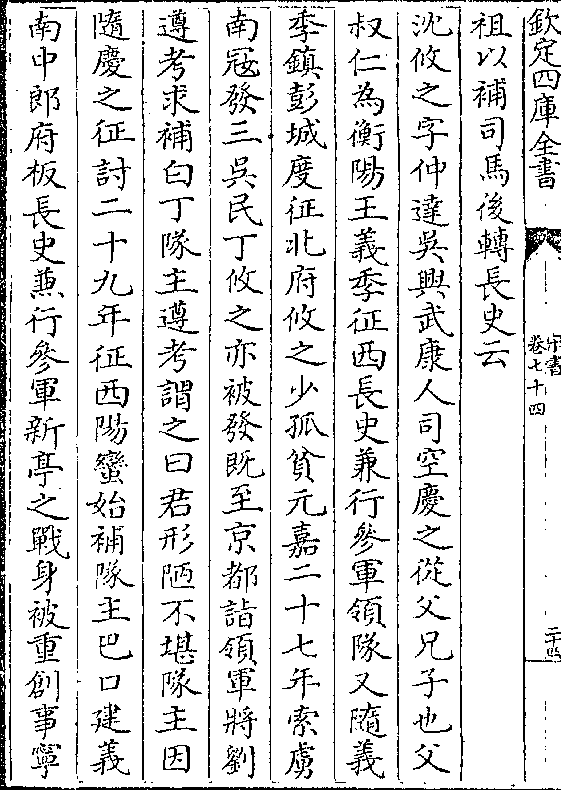 欽定四庫全書
宋書
卷七十四
二十四
祖以補司馬後轉長史云
沈攸之字仲達吳興武康人司空慶之從父兄子也父
叔仁為衡陽王義季征西長史兼行參軍領隊又隨義
季鎮彭城度征北府攸之少孤貧元嘉二十七年索虜
南寇發三吳民丁攸之亦被發既至京都詣領軍將劉
遵考求補白丁隊主遵考謂之曰君形陋不堪隊主因
隨慶之征討二十九年征西陽蠻始補隊主巴口建義
南中郎府板長史兼行參軍新亭之戰身被重創事寧